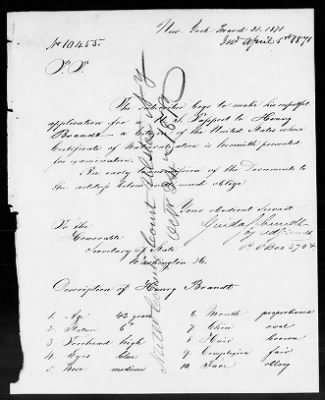 New York March 31, 1871
No 10455.
Issd April 1st 1871
The subscriber begs to make his respectful
application for a U.S. Passport to Henry
Brandt – a citizen of the United States whose
Certificate of Naturalization is herewith presented
for examination.
An early transmission of the Documents to
the address below and much oblige
Your obedient Servant
P.O. Box 5704
To the
Honorable
Secretary of State
Washington
Description of Henry Brandt
1. Age 43 years
2. Stature 6
3. Forehead high
4. Eyes blue
5. Nose medium
6. Mouth proportioned
7. Chin oval
8. Hair brown
9. Complexion fair
10. Face oblong